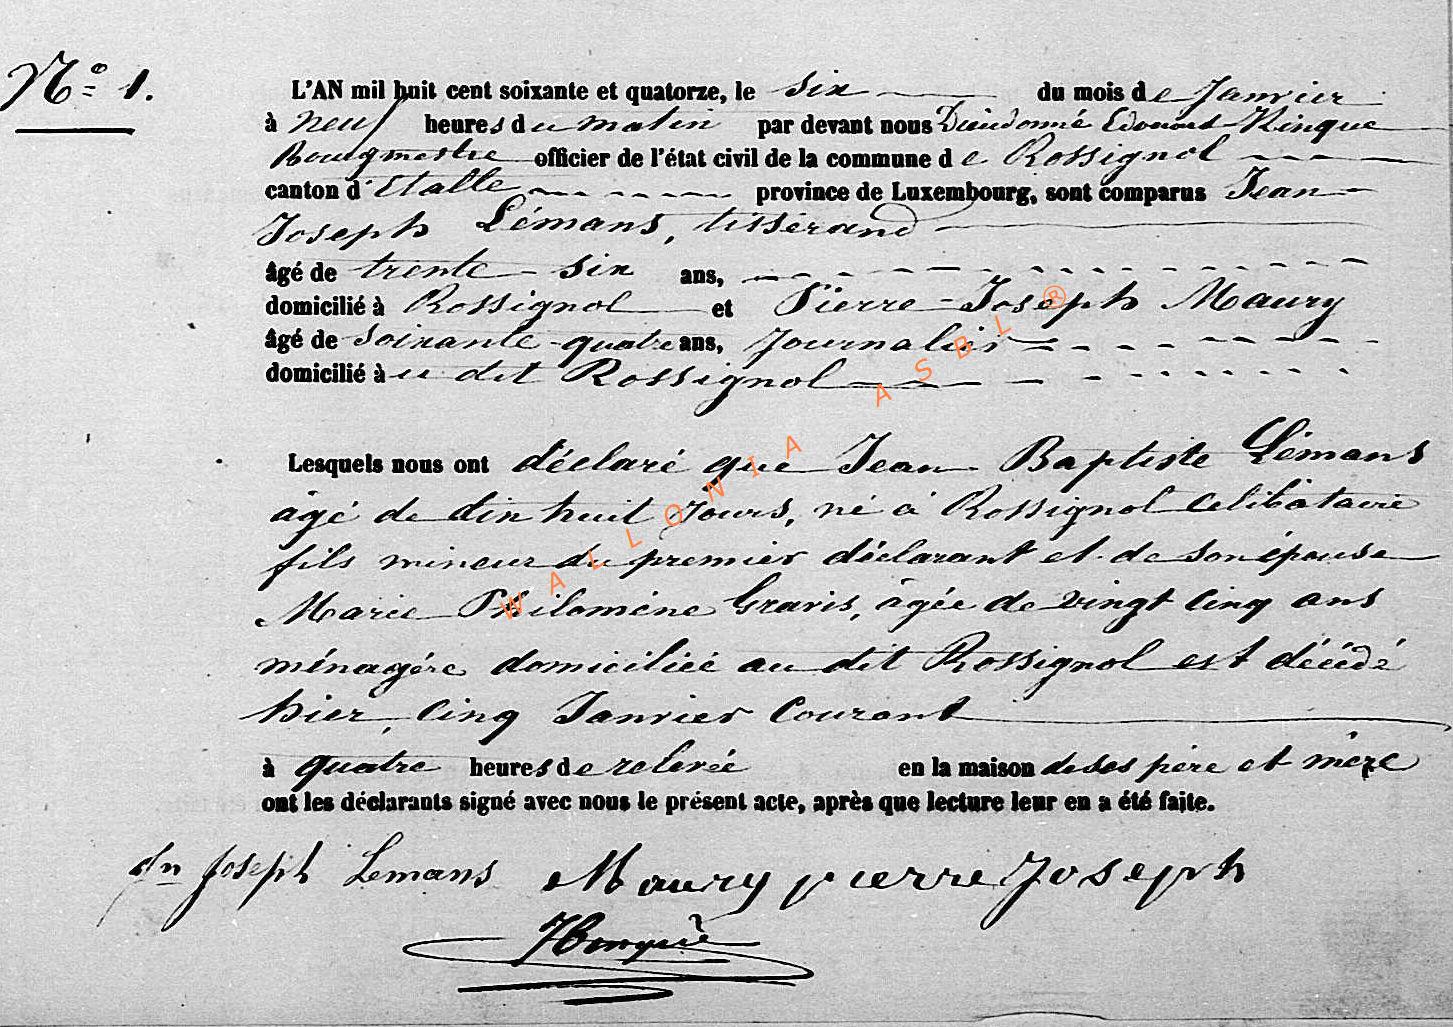 N° 1.
L'AN mil huit cent soixante et quatorze, le six du mois de Janvier
à neuf heures du matin par devant nous Dieudonné Edouard Hinque
Bourgmestre officier de l'état civil de la commune de Rossignol
canton d'Etalle province de Luxembourg, sont comparus Jean
Joseph Lémans, tisserand
âgé de trente-six ans,
domicilié à Rossignol et Pierre-Joseph Maury
âgé de soixante-quatre ans, Journalier
domicilié à dit Rossignol
Lesquels nous ont déclaré que Jean Baptiste Lémans
âgé de dix huit Jours, né à Rossignol celibataire
fils mineur du premier déclarant et de son épouse
Marie Philomène Gravis, âgée de vingt cinq ans
ménagère domiciliée au dit Rossignol est décédé
hier cinq Janvier Courant
à quatre heures de relevée en la maison de ses père et mère
ont les déclarants signé avec nous le présent acte, après que lecture leur en a été faite.
Jn Joseph Lemans Maury pierre Joseph
WALLONIA ASBL®